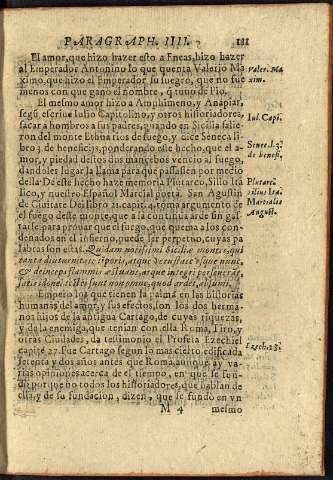 PARAGRAPH. IIII. 181
El amor, que hizo hazer esto a Eneas, hizo hazer
al Emperador Antonino lo que quenta Valerio Ma
ximo, que hizo el Emperador su suegro, que no fue
menos con que ganò el nombre, q̃ tuuo de Pio.
Valer. Ma
xim.
El mesmo amor hizo a Amphimeno, y Anapias,
segũ escriue Iulio Capitolino, y otros historiadores,
sacar a hombros a sus padres, quando en Sicilia salie-
ron del monte Ethna rios de fuego, y dize Seneca li-
bro 3. de beneficijs, ponderando este hecho, que el a-
mor, y piedad destos dos mancebos venciò al fuego,
dandoles lugar la llama para que passassen por medio
della. De este hecho haze memoria Plutarco, Silio Ita
lico, y nuestro Español Marcial poeta. San Agustin
de Ciuitate Dei libro 21. capit. 4. toma argumento de
el fuego deste monte, que a la continua arde sin gas-
tarse para prouar que el fuego, que quema a los con-
denados en el infierno, puede ser perpetuo, cuyas pa
labras son estas. Quidam notissimi Siciliæ montes, qui
tanta diuturnitate temporis, atque vetustate vsque nunc,
& deinceps flammis æstuant, atque integri perseuerãt,
satis idonei testes sunt non omne, quod ardet, absumi.
Iul. Capi.
Senec. l. 3.
de benefi.
Plutarc.
Silius Ita.
Martialis
August.
Empero los que tienen la palma en las historias
humanas del amor, y sus efectos, son los dos herma-
nos hijos de la antigua Cartago, de cuyas riquezas,
y da la enemiga, que tenian con ella Roma, Tiro, y
otras Ciudades, da testimonio el Profeta Ezechiel
capite 27. Fue Cartago segun lo mas cierto edificada
setenta y dos años antes que Roma, aunque ay va-
rias opiniones acerca de el tiempo, en que se fun-
dò: por que no todos los historiadores, que hablan de
ella, y de su fundacion, dizen, que se fundò en vn
Ezech. 28.
M 4 mesmo